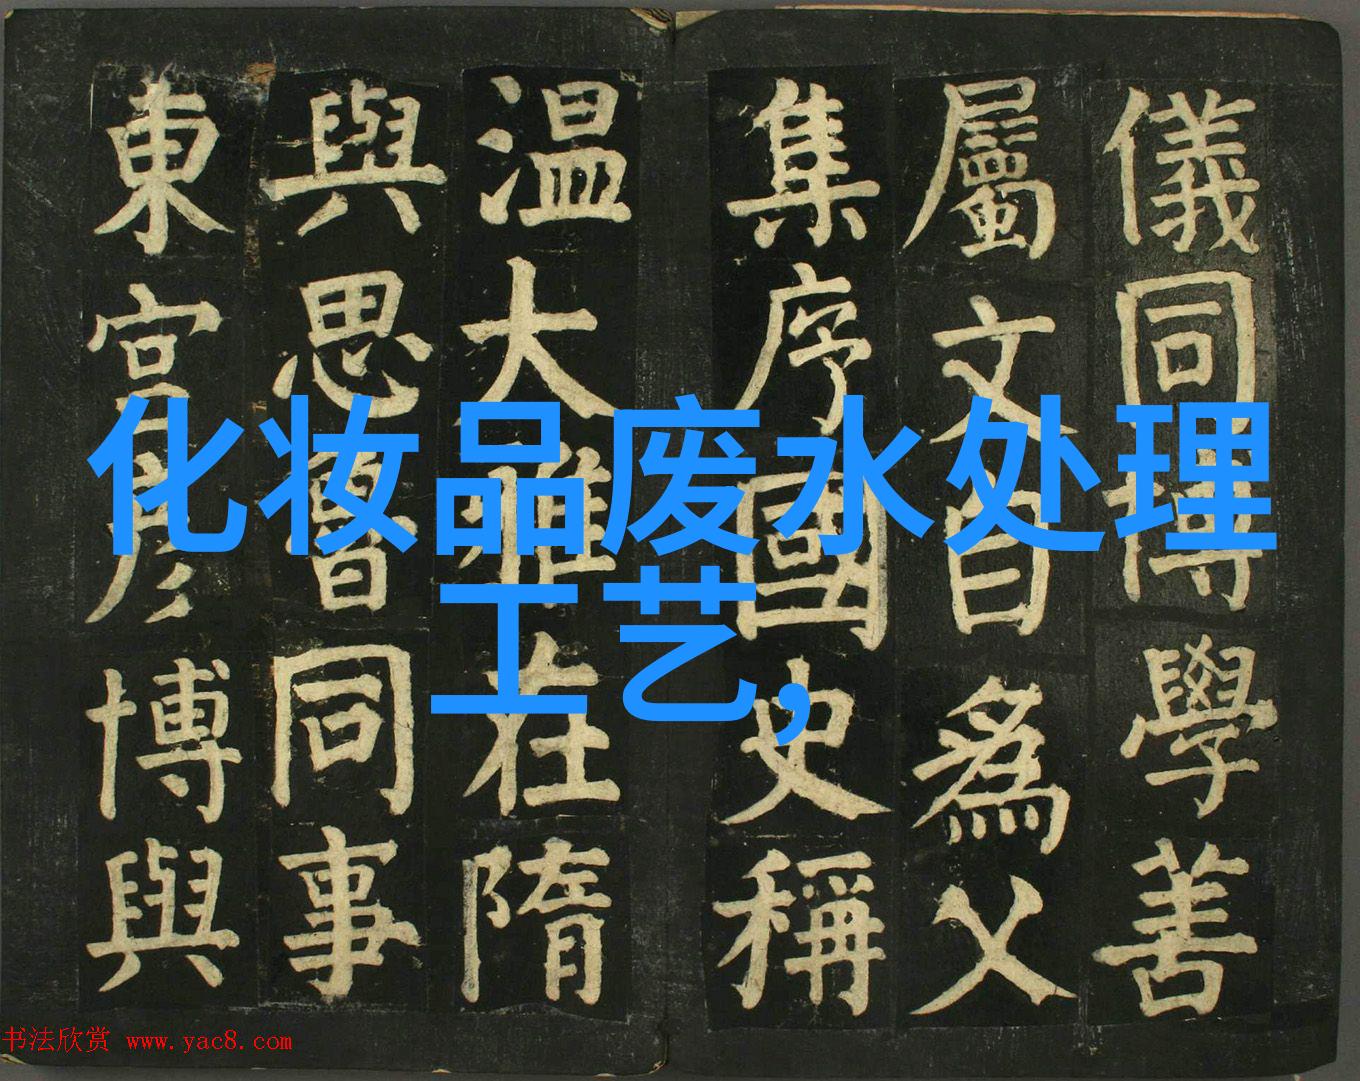 化妆品废水处理
工艺,
儀同博學善
屬文自爲父
集序國史稱
温大雅在隋
與思魯同事
東宫彦博與
书法欣赏 www.yac8.com